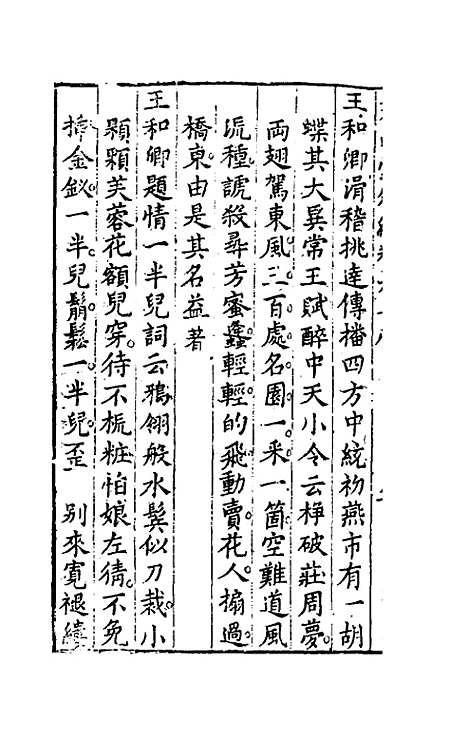 王和卿滑稽挑達傳播四方中統初燕市有一胡
蝶其大異常王賦醉中天小令云掙破莊周夢
两翅駕東風三百處名園一采一箇空難道風
流種諕殺尋芳蜜蠭輕輕的飛動賣花人搧過
橋東由是其名益著
王和卿題情一半兒詞云鴉翎般水鬂似刀裁小
顆顆芙蓉花額兒窄待不梳粧怕娘左猜不免
揷金釵一半兒鬅鬆一半兒歪　別來寬褪縷